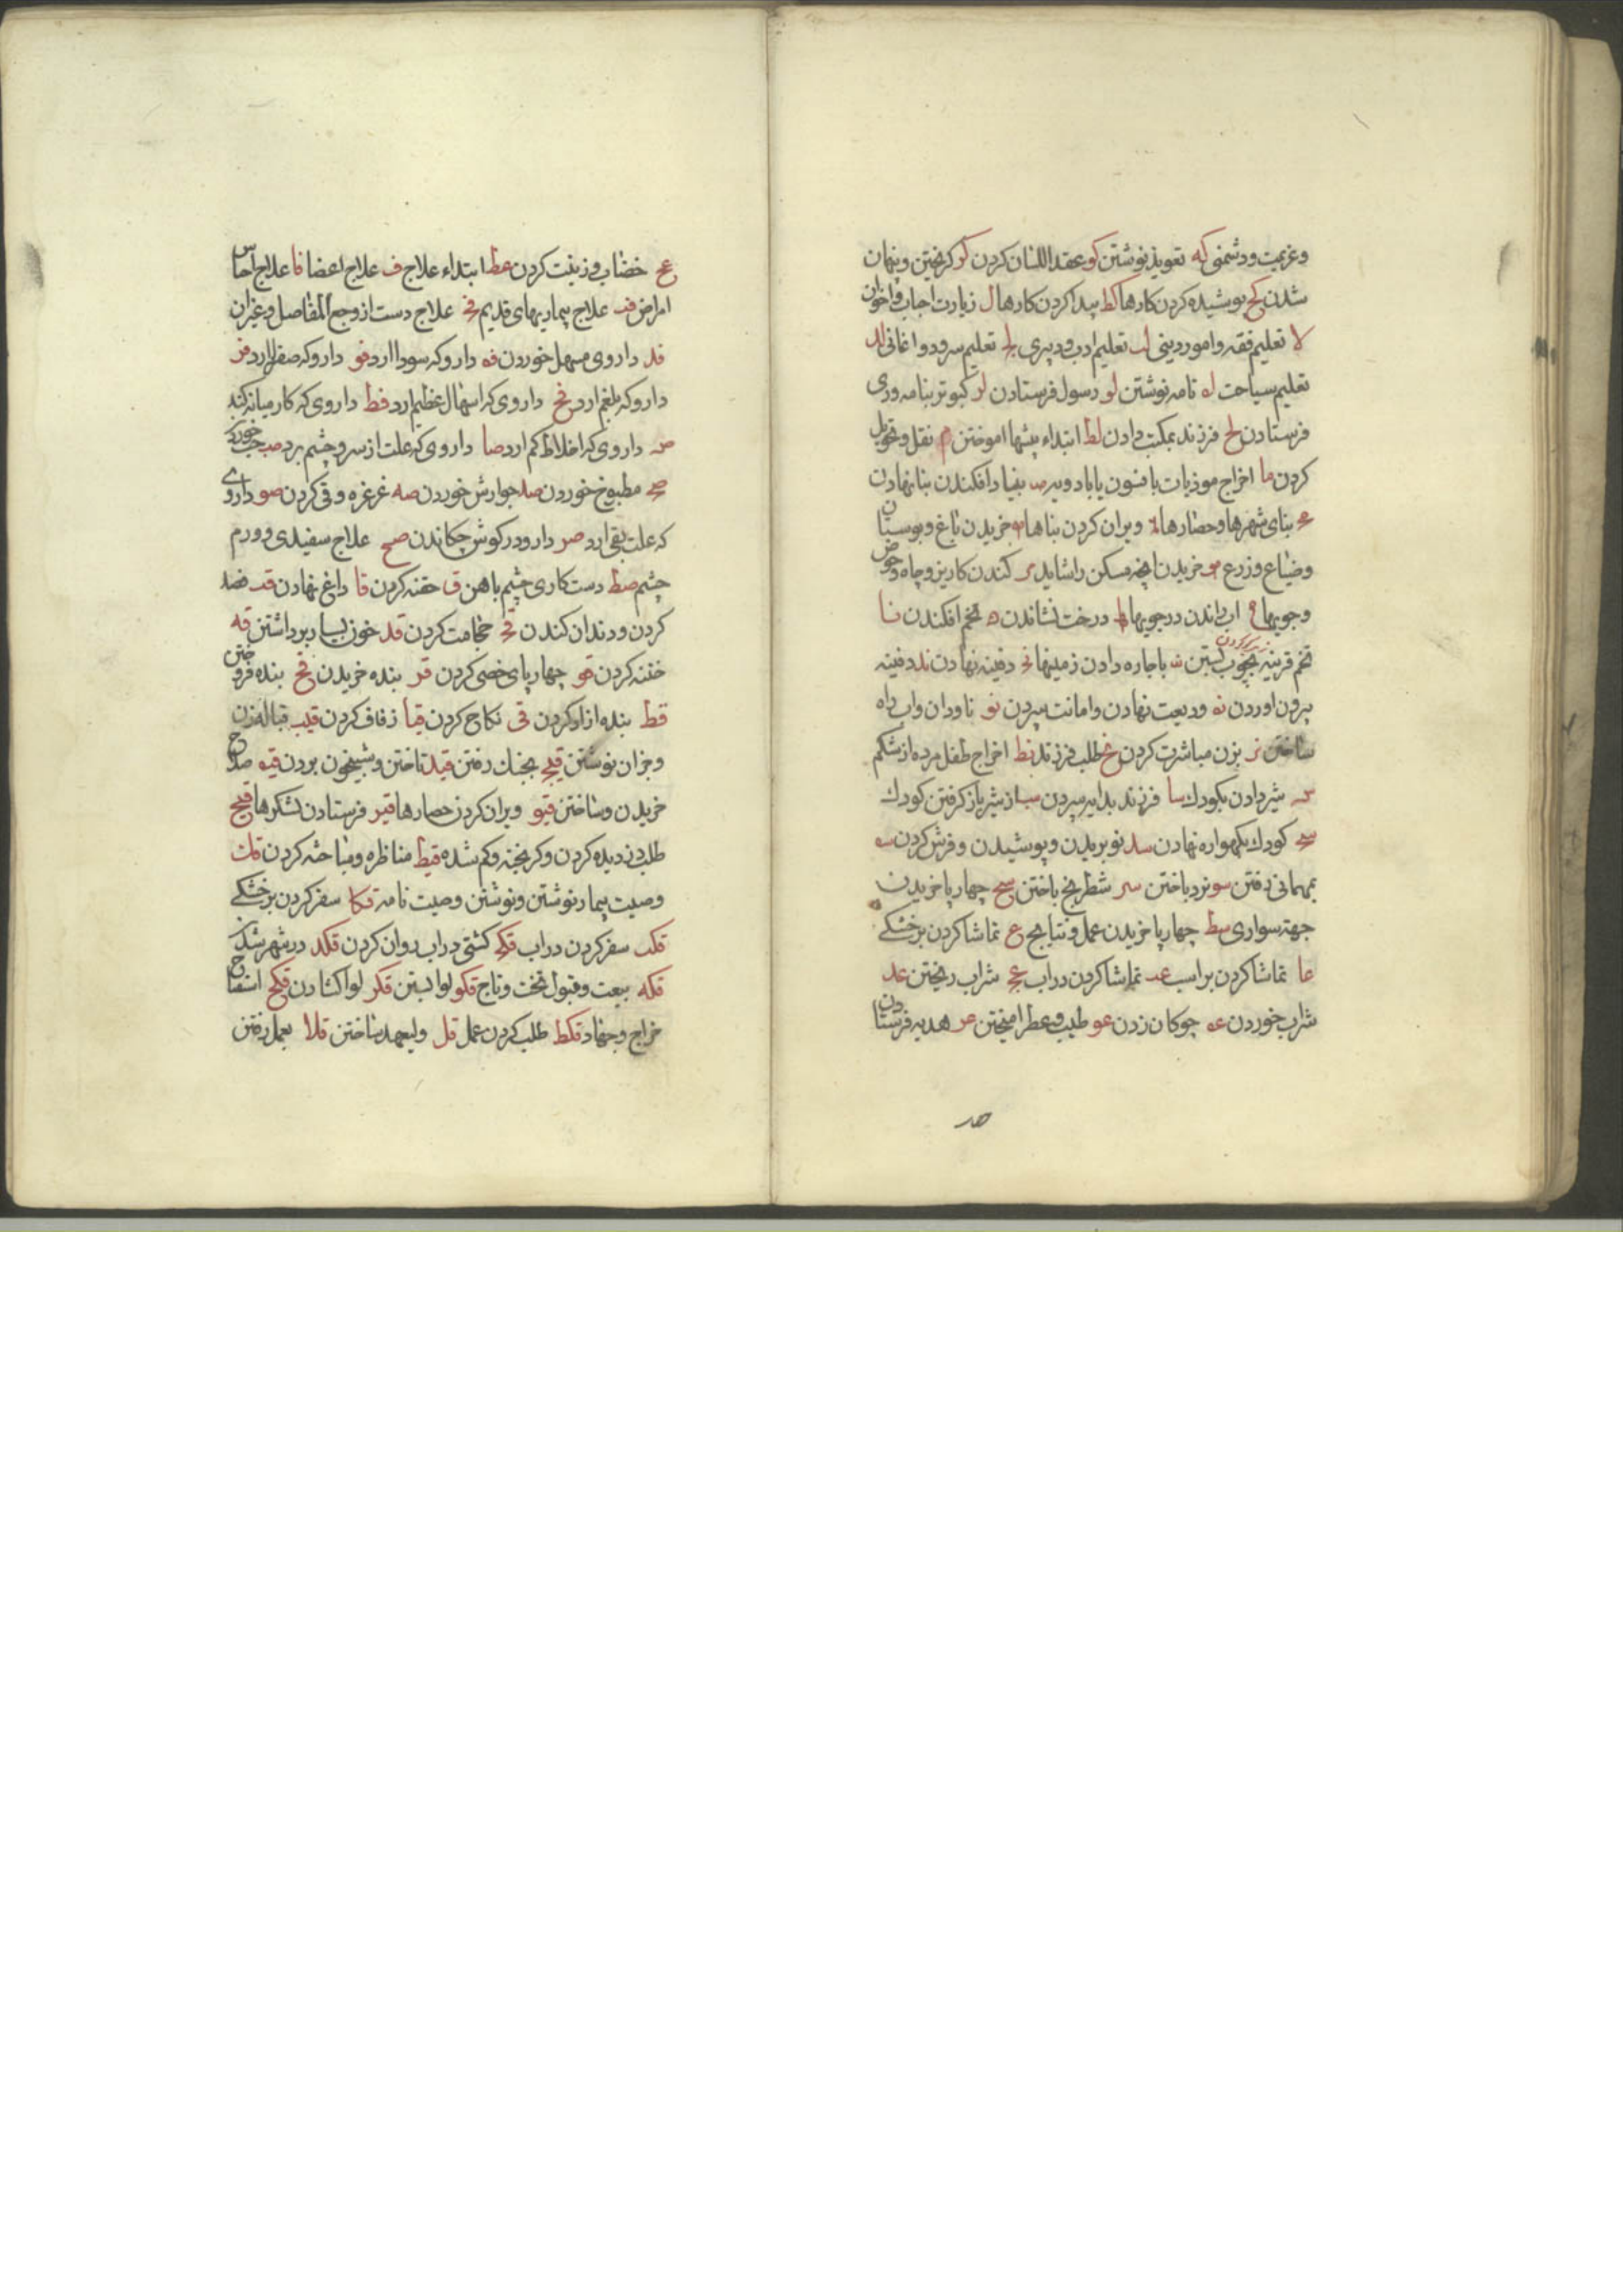 وعزیمت و دشمنی که تعویذ نوشتن کو عقد اللسان کردن کز کریختن و پنهان
شدن کح پوشیده کردن کارها کط پیدا کردن کارها ل زیارت احباب و اخوان
لا تعلیم فقه و امور دینی لب تعلیم ادب و دبیری لج تعلیم سرود و اغانی لد
تعلیم سیاحت له نامه نوشتن لو رسول فرستادن لز کبوتر بنامه وری
فرستادن لح فرزند بمکتب دادن لط ابتداء پیشها اموختن م نقل و تحویل
کردن ما اخراج موذیات با فسون یا بادویه مب بنیاد افکندن بنا نهادن
مج بنای شهرها و حصارها مد ویران کردن بناها مه خریدن باغ و بوستان
وضیاع و زرع مو خریدن انچه مسکن را شاید مز کندن کاریز و چاه و حوض
وجویها مح اب راندن در جویها مط درخت نشاندن ن تخم افکندن نا
تخم قرینه بچوب بستن نب باجاره دادن زمینها نج دفینه نهادن ند دفینه
بیرون اوردن نه ودیعت نهادن و امانت سپردن نو ناودان و اب راه
ساختن نز بزن مباشرت کردن نح طلب فرزند نط اخراج طفل مرده از شکم
س شیر دادن بکودک سا فرزند بدایه سپردن سب از شیر باز کرفتن کودک
سج کودک بکهواره نهادن سد نو بریدن و پوشیدن و فرش کردن سه
بمهمانی رفتن سو نرد باختن سز شطرنج باختن سح چهارپا خریدن
جهته سواری سط چهارپا خریدن عمل و نتایج ع تماشا کردن بر خشکی
عا تماشا کردن بر اسب عب تماشا کردن در اب عج شراب ریختن عد
شراب خوردن عه چوکان زدن عو طیب و عطر امیختن عز هدیه فرستادن
عح خضاب و زینت کردن عط ابتداء علاج ف علاج اعضا فا علاج اجناس
امراض فب علاج بیماریهای قدیم فج علاج دست از وجع المفاصل و غیر ان
فد داروی مسهل خوردن فه دارو که سودا ارد فو دارو که صفرا ارد فز
دارو که بلغم ارد فح داروی که اسهال عظیم ارد فط داروی که کار میانه کند
ص داروی که اخلاط کم ارد صا داروی که علت از سر و چشم برد صب حب خوردن
صج مطبوخ خوردن صد جوارش خوردن صه غرغره و قی کردن صو داروی
که علت بقی ارد صز دارو در کوش چکاندن صح علاج سفیدی و ورم
چشم صط دست کاری چشم باهن ق حقنه کردن قا داغ نهادن قب فصد
کردن و دندان کندن قج حجامت کردن قد خون بسیار برداشتن قه
ختنه کردن قو چهارپای خصی کردن قز بنده خریدن قح بنده فروختن
قط بنده ازاد کردن قی نکاح کردن قیا زفاف کردن قیب قباله زن
وجز ان نوشتن قیج بجنک رفتن قید تاختن و شبیخون بردن قیه صلاح
خریدن و ساختن قیو ویران کردن حصارها قیز فرستادن لشکرها قیح
طلب دزدیده کردن و کریخته و کم شده قیط مناظره و مباحثه کردن قک
وصیت بیمار نوشتن و نوشتن وصیت نامه قکا سفر کردن بر خشکی
قکب سفر کردن در اب قکج کشتی در اب روان کردن قکد در شهر شدن
قکه بیعت و قبول تخت و تاج قکو لوا بستن قکز لوا کشادن قکح استفتاح
خراج و جهاد قکط طلب کردن عمل قل ولیعهد ساختن قلا بعمل رفتن